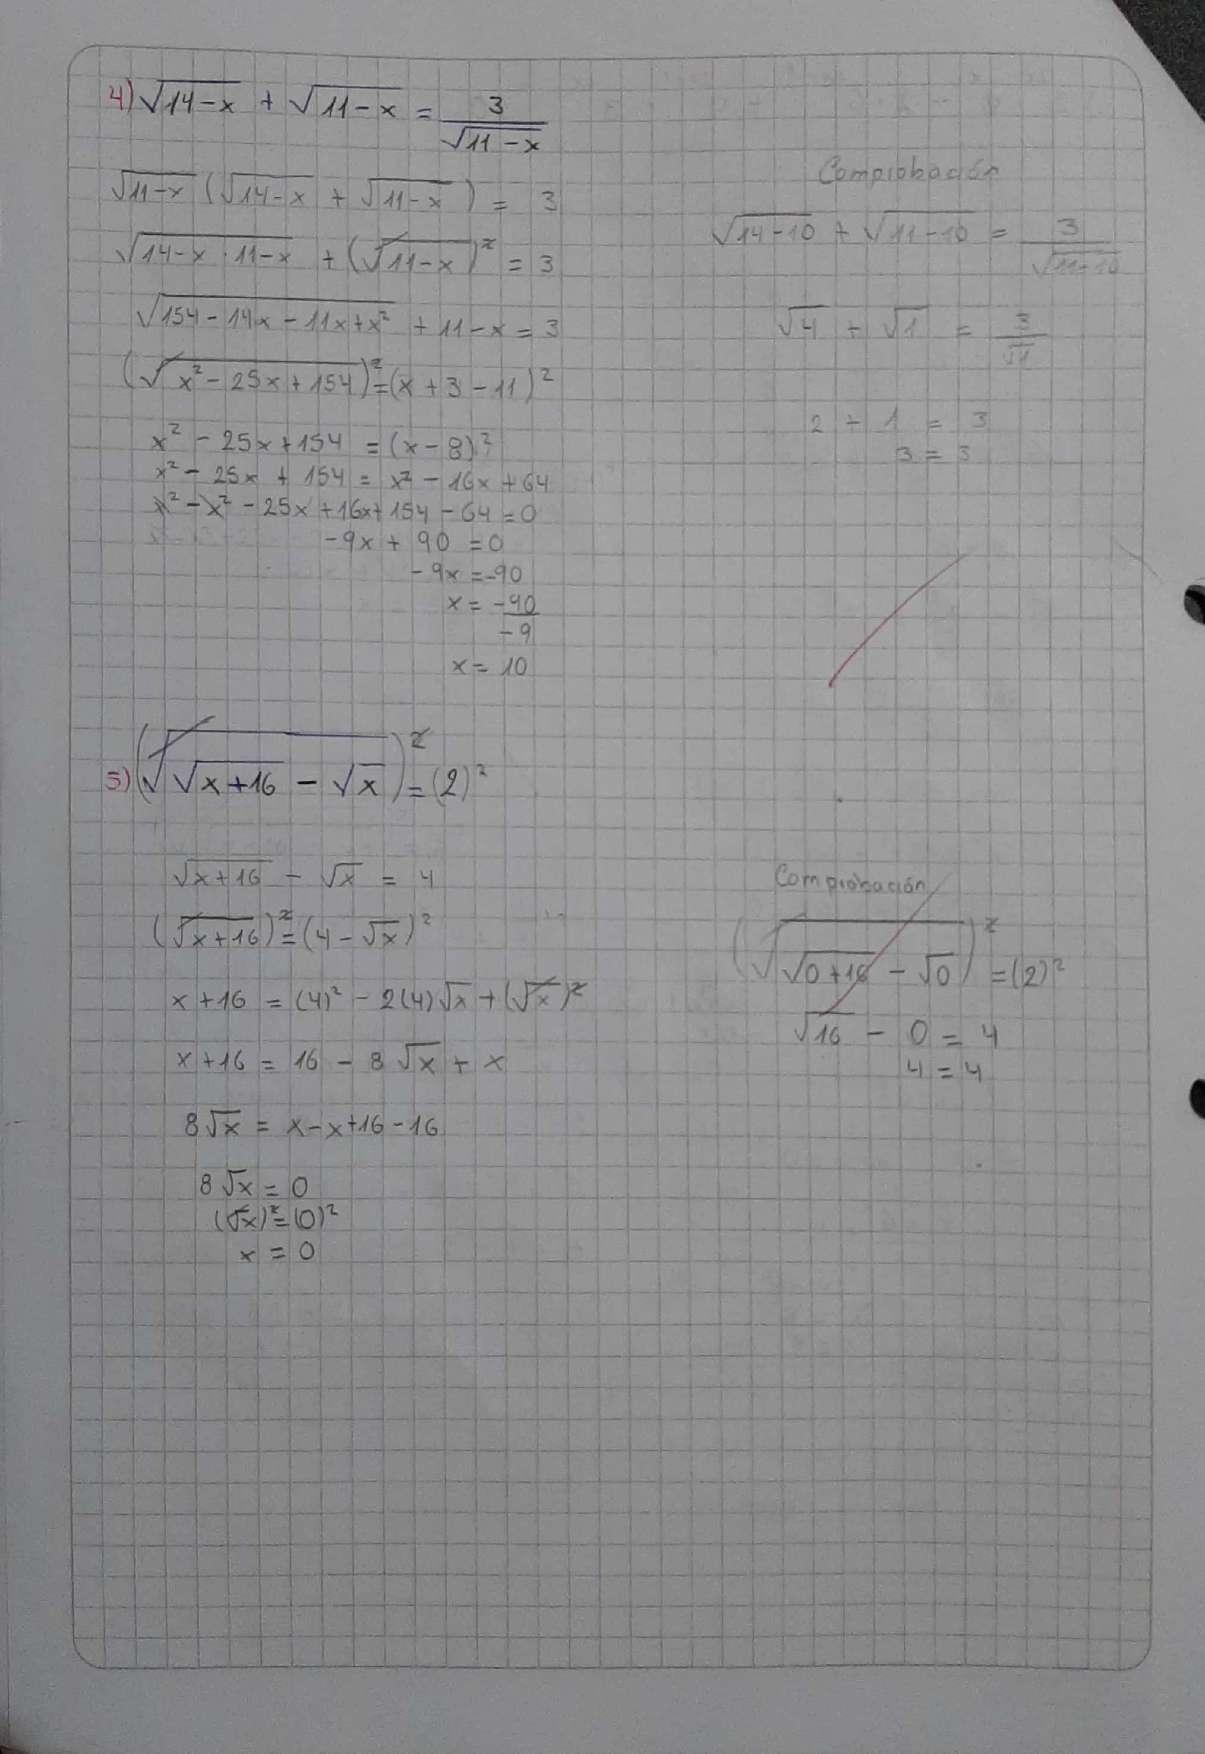 4) √(14-x) + √(11-x) = 3/√(11-x)
√(11-x) (√(14-x) + √(11-x)) = 3
√(14-x · 11-x) + (√(11-x))² = 3
√(154-14x-11x+x²) + 11-x = 3
(√(x²-25x+154))² = (x+3-11)²
x² - 25x+154 = (x-8)²
x² - 25x + 154 = x² - 16x+64
x² - x² - 25x+16x+154-64=0
-9x + 90 = 0
-9x = -90
x = -90/-9
x = 10
Comprobación
√(14-10) + √(11-10) = 3/√(11-10)
√4 + √1 = 3/√1
2 + 1 = 3
3 = 3
5) (√(√(x+16) - √x))² = (2)²
√(x+16) - √x = 4
(√(x+16))² = (4-√x)²
x+16 = (4)² - 2(4)√x + (√x)²
x+16 = 16 - 8√x + x
8√x = x-x+16-16
8√x = 0
(√x)² = (0)²
x = 0
Comprobación
(√(√(0+16) - √0))² = (2)²
√16 - 0 = 4
4 = 4